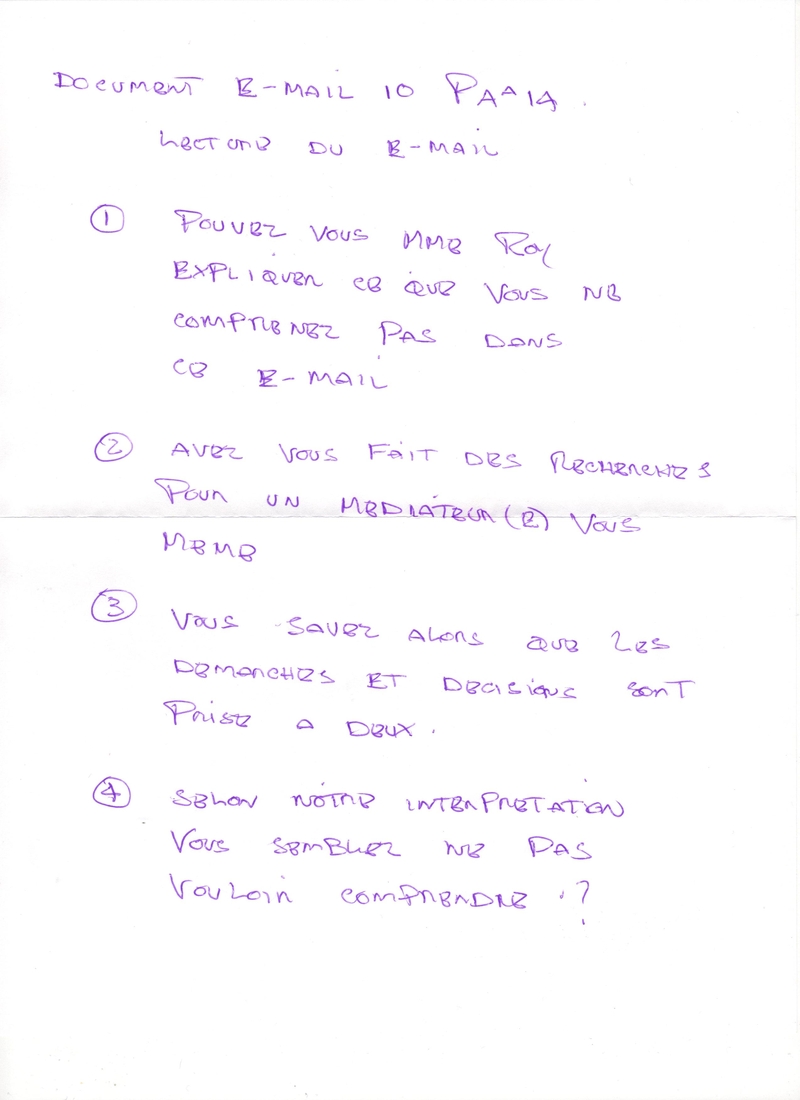 DOCUMENT E-MAIL 10 PAA 14.
LECTURE DU E-MAIL
① POUVEZ VOUS MME ROY
EXPLIQUER CE QUE VOUS NE
COMPRENEZ PAS DANS
CE E-MAIL
② AVEZ VOUS FAIT DES RECHERCHES
POUR UN MEDIATEUR(E) VOUS
MEME
③ VOUS SAVEZ ALORS QUE LES
DEMARCHES ET DECISIONS SONT
PRISE A DEUX.
④ SELON NÔTRE INTERPRETATION
VOUS SEMBLEZ NE PAS
VOULOIR COMPRENDRE .?